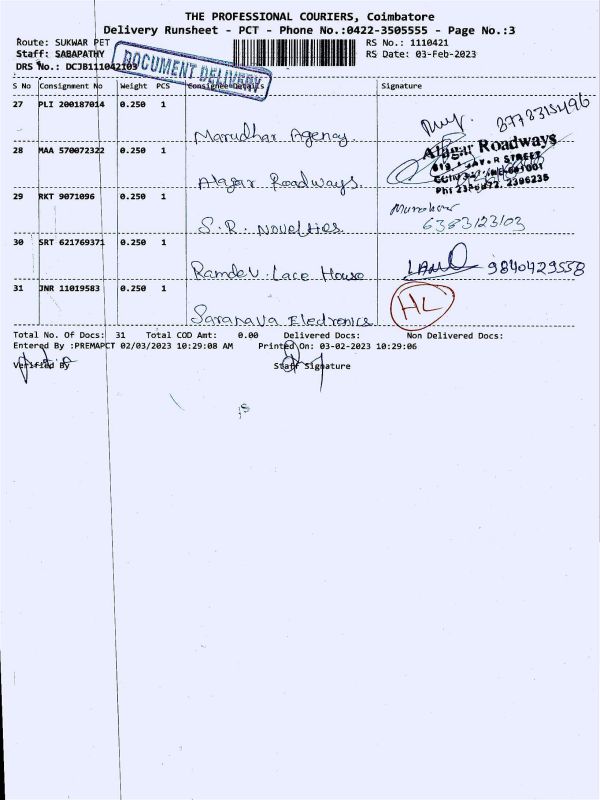 THE PROFESSIONAL COURIERS, Coimbatore
Delivery Runsheet - PCT - Phone No.:0422-3505555 - Page No.:3
Route: SUKWAR PET
RS No.: 1110421
Staff: SABAPATHY
RS Date: 03-Feb-2023
DRS No.: DCJB111042103
DOCUMENT DELIVERY
S No Consignment No Weight PCS Consignee Details Signature
27 PLI 200187014 0.250 1
Marudhar Agency.
8778315496
28 MAA 570072322 0.250 1
Alagar Roadways.
Alagar Roadways
29 RKT 9071096 0.250 1
S.R. Novelties
6383123103
30 SRT 621769371 0.250 1
Ramdev Lace House
9840429558
31 JNR 11019583 0.250 1
Saranava Electronics
HL
Total No. Of Docs: 31 Total COD Amt: 0.00 Delivered Docs: Non Delivered Docs:
Entered By :PREMAPCT 02/03/2023 10:29:08 AM Printed On: 03-02-2023 10:29:06
Verified By Staff Signature